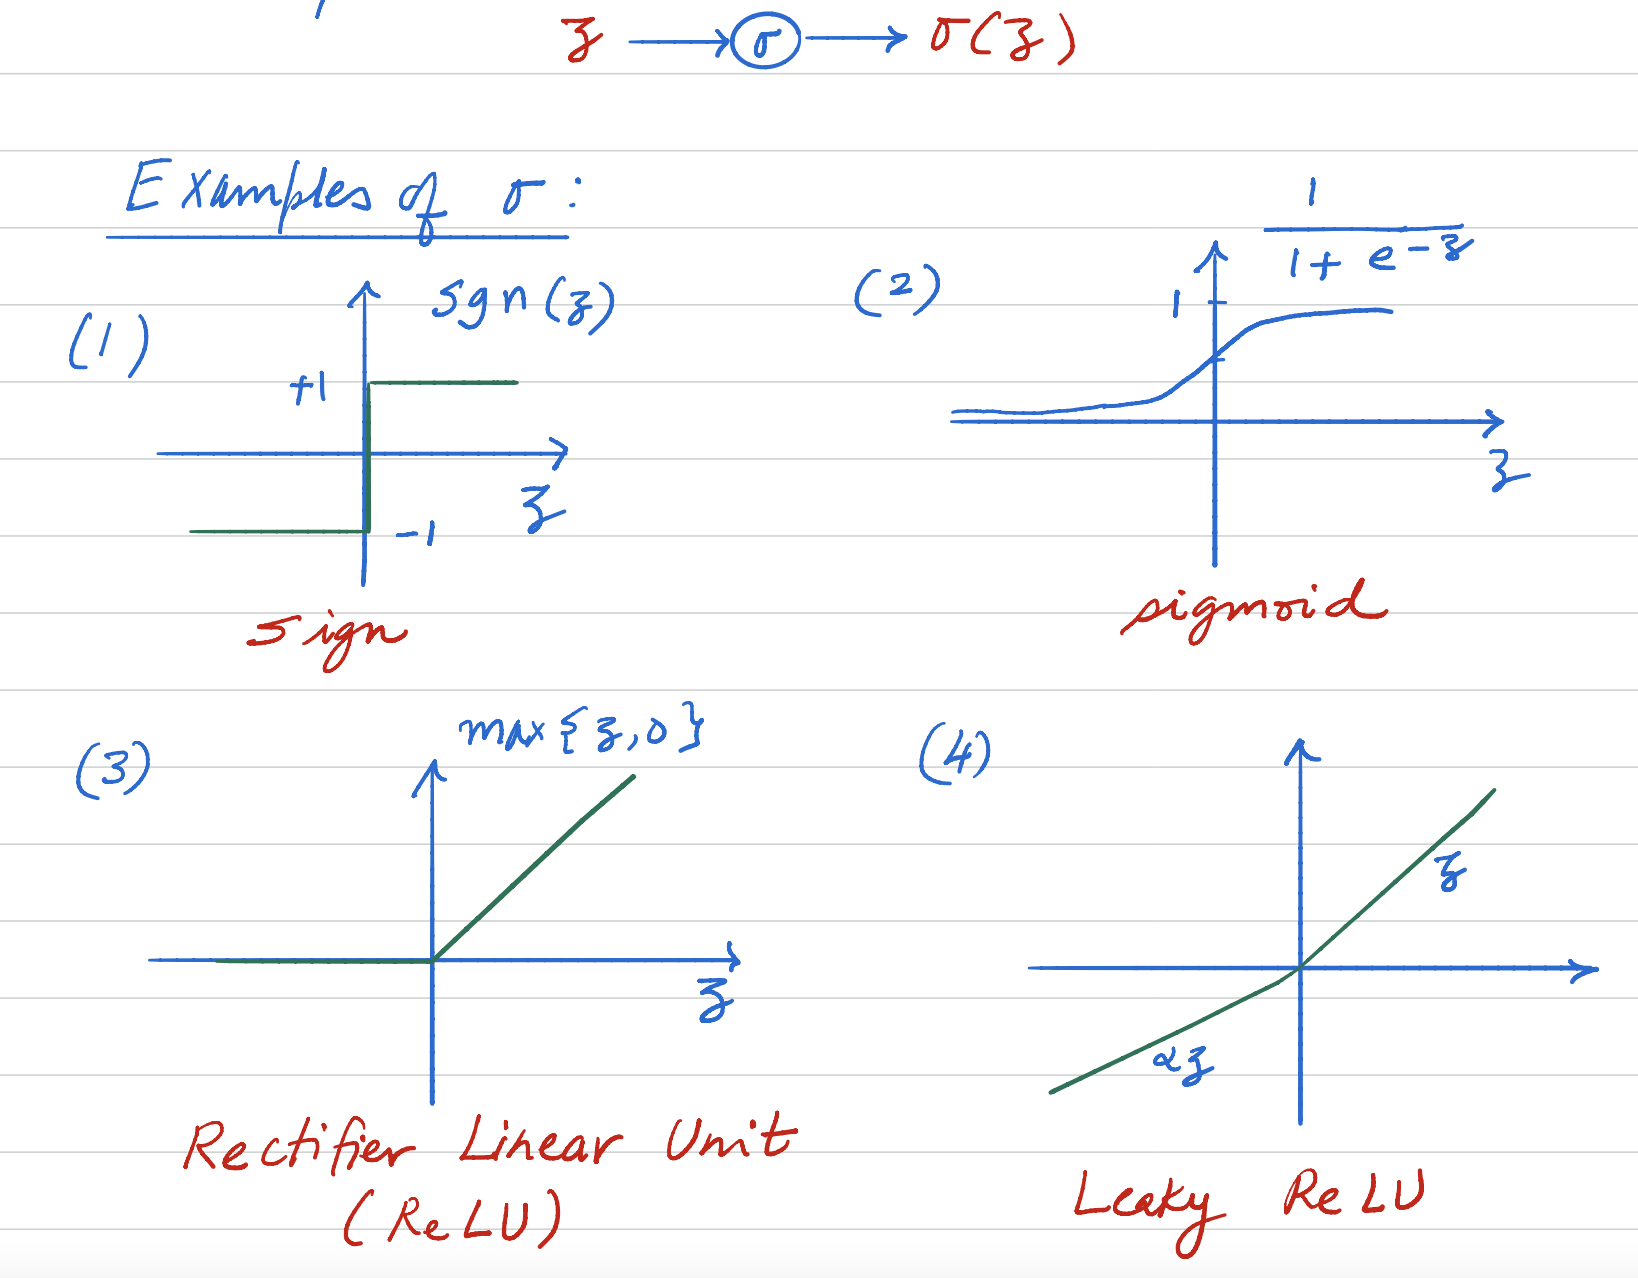 z → σ → σ(z)
Examples of σ:
(1)
sgn(z)
+1
-1
z
sign
(2)
1
1 + e^-z
1
z
sigmoid
(3)
max{z,0}
z
Rectifier Linear Unit
(ReLU)
(4)
z
αz
Leaky ReLU